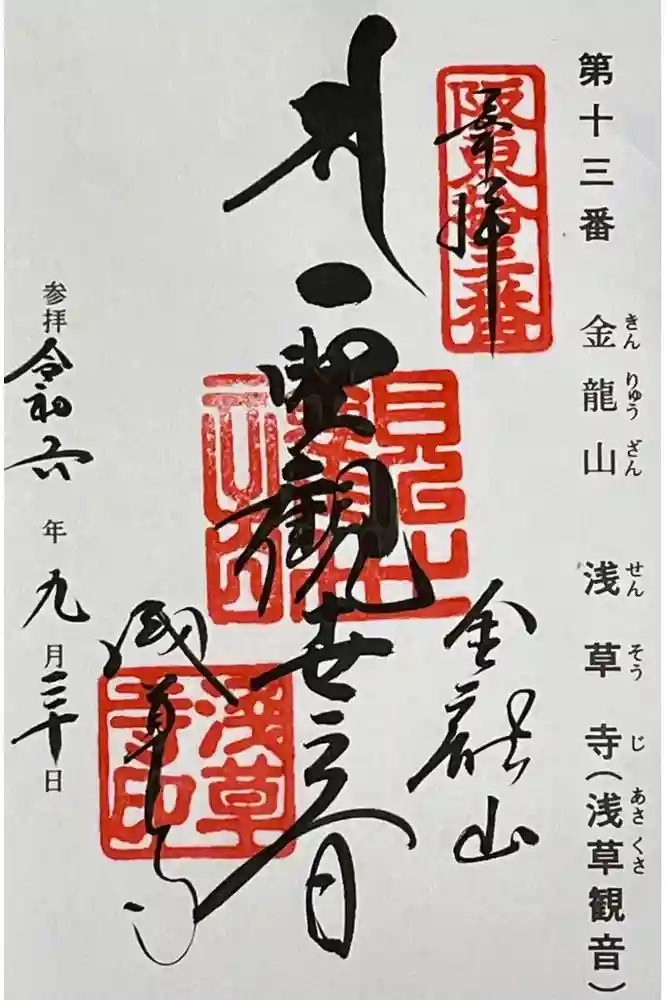 第十三番 金龍山 浅草寺(浅草観音)
きん りゅう ざん せん そう じ あさ くさ
阪東拾三番
奉拝
金龍山
聖観世音
浅草寺
浅草寺印
参拝 令和六年九月 日